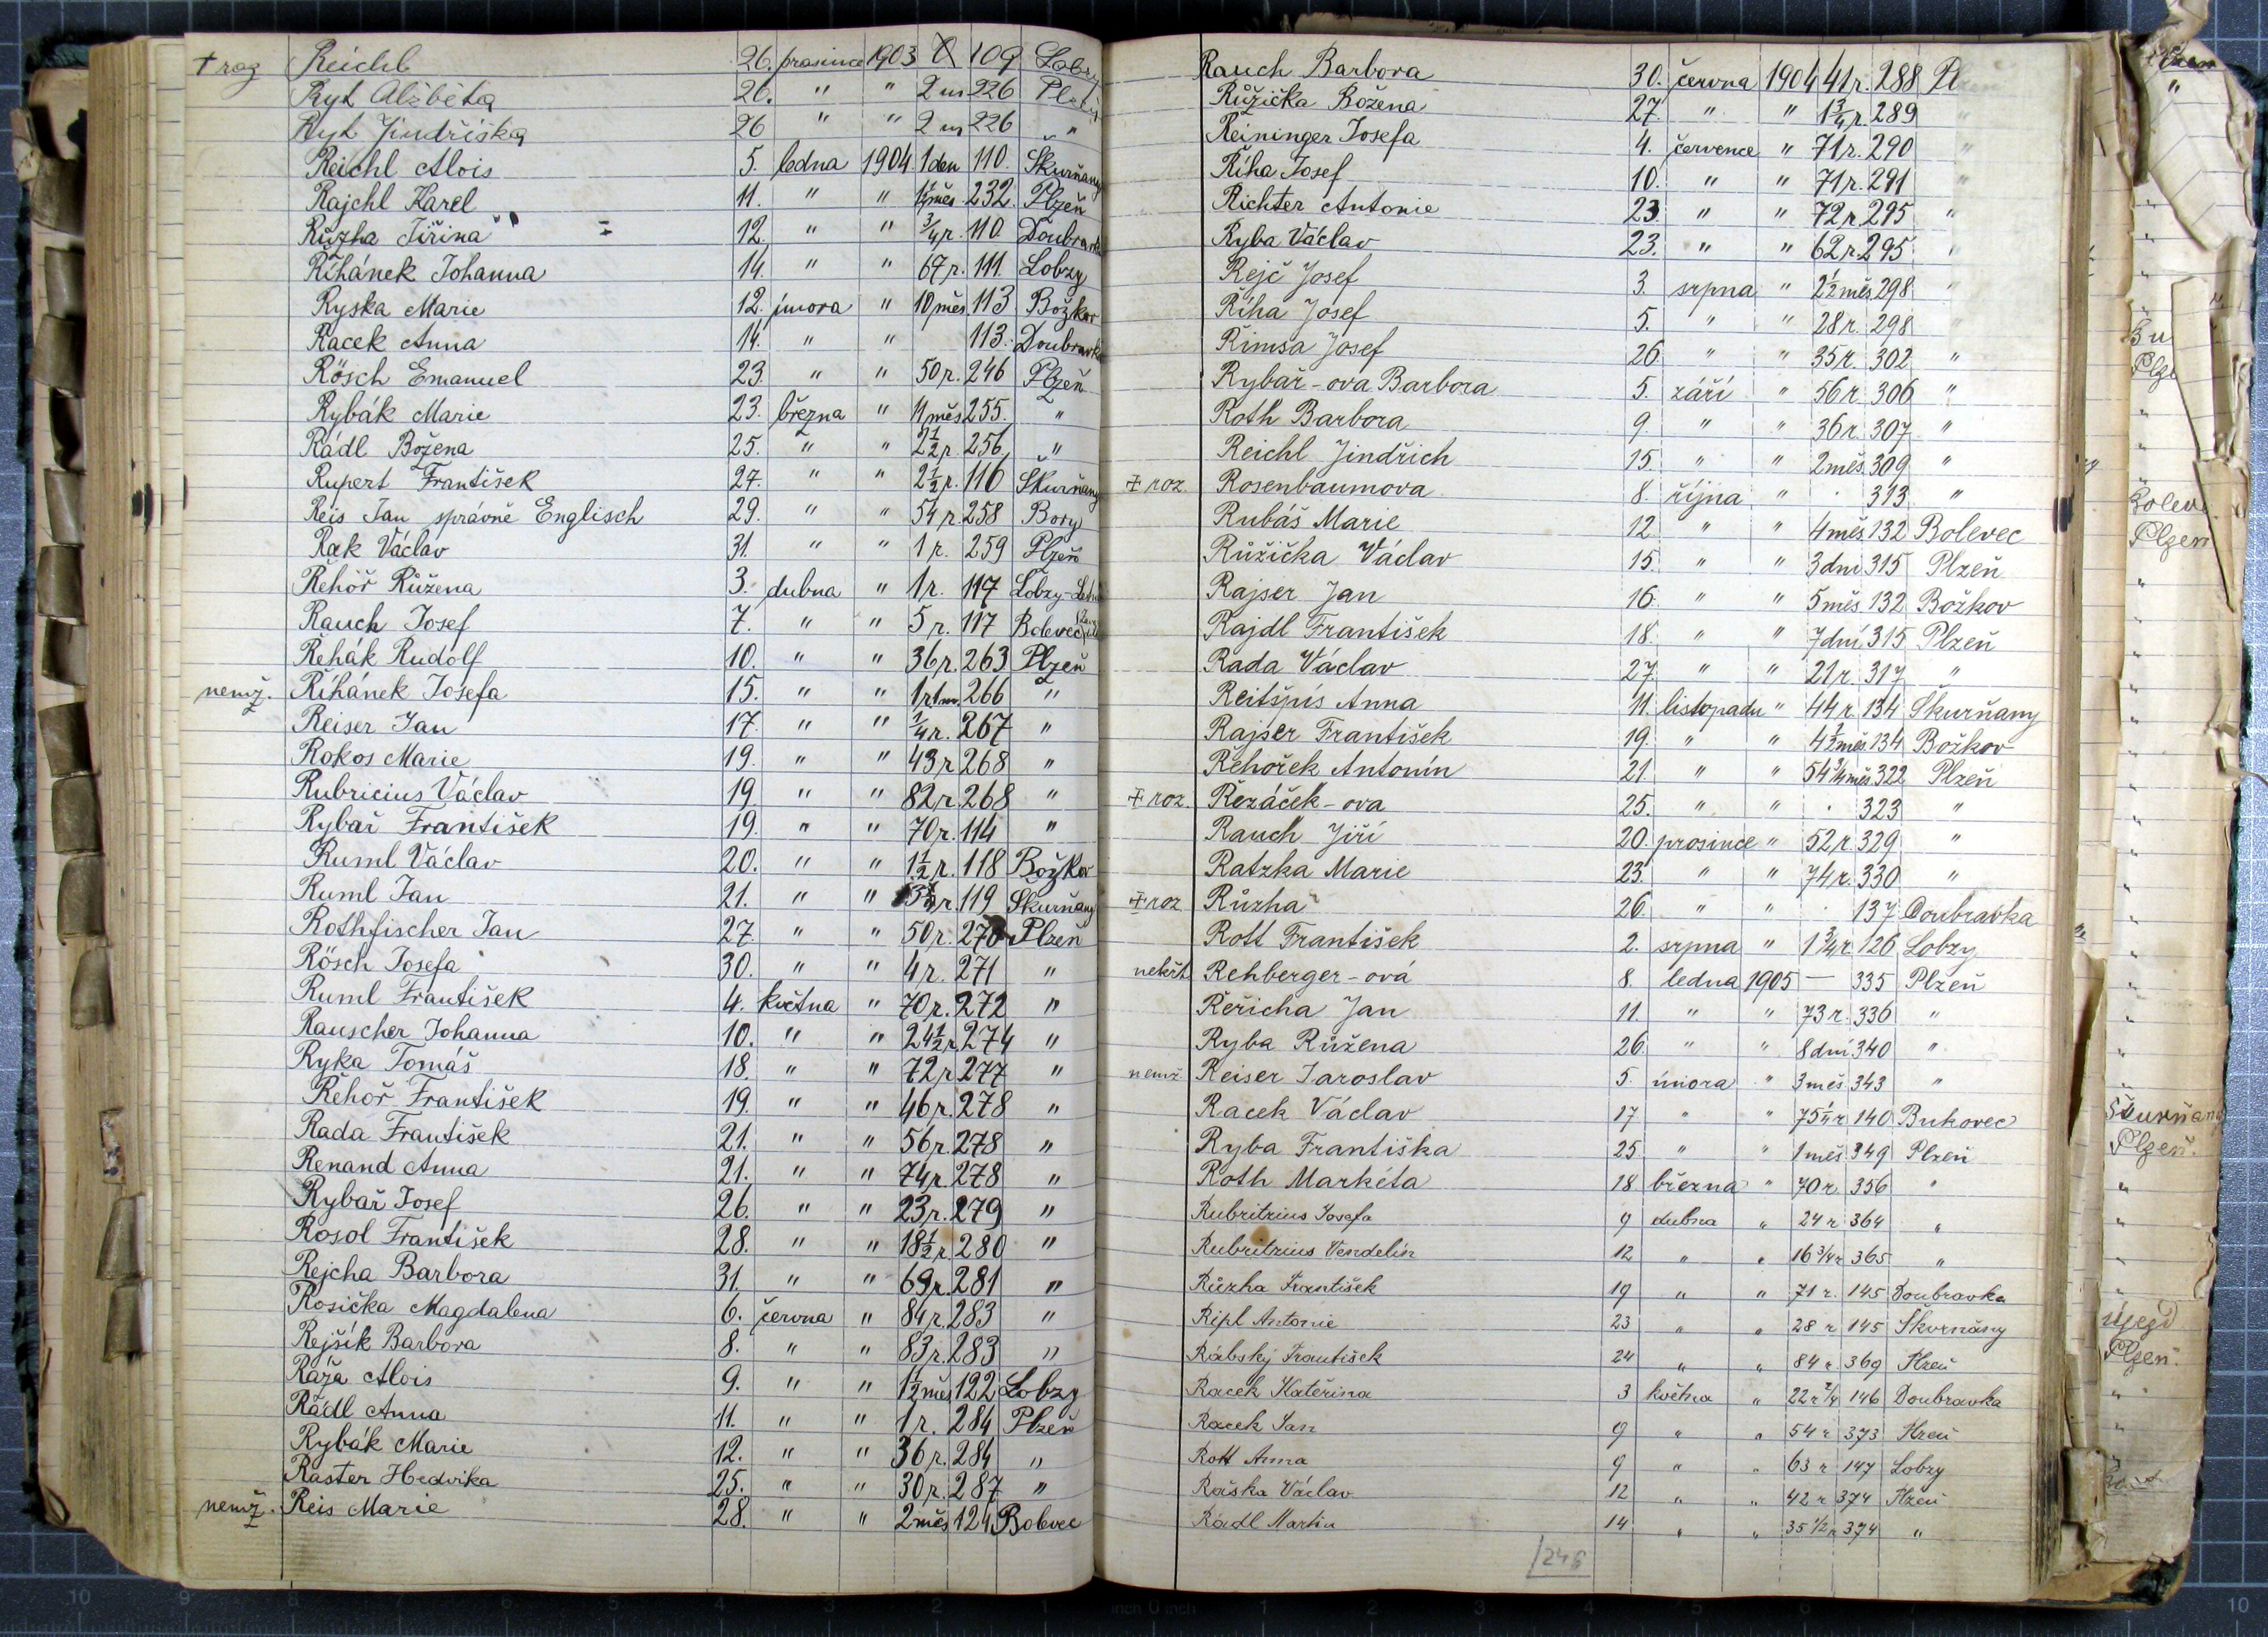 † roz Reichl 26. prosince 1903 0 109 Lobzy
Ryt Alžběta 26. " " 2 m 226 Plzeň
Ryt Jindřiška 26 " " 2 m 226 "
Reichl Alois 5. ledna 1904 1 den 110 Skurňany
Rajchl Karel 11. " " měs 232 Plzeň
Růzha Jiřina 12. " " 3/4 r. 110 Doubravka
Říhánek Johanna 14. " " 67 r. 111 Lobzy
Ryska Marie 12. února " 10 měs 113 Božkov
Racek Anna 14. " " 113. Doubravka
Rösch Emanuel 23. " " 50 r. 246 Plzeň
Rybák Marie 23. března " 11 měs 255. "
Rádl Božena 25. " " 2 1/2 r. 256 "
Rupert František 27. " " 2 1/2 r. 116 Skurňany
Reis Jan správně Englisch 29. " " 54 r. 258 Bory
Rak Václav 31. " " 1 r. 259 Plzeň
Řehoř Růžena 3. dubna " 1 r. 117 Lobzy
Rauch Josef 7. " " 5 r. 117 Bolevec
Řehák Rudolf 10. " " 36 r. 263 Plzeň
nemž. Říhánek Josefa 15. " " 1 r 1 m. 266 "
Reiser Jan 17. " " 1/4 r. 267 "
Rokos Marie 19. " " 43 r 268 "
Rubricius Václav 19. " " 82 r. 268 "
Rybař František 19. " " 70 r. 114 "
Ruml Václav 20. " " 1 1/2 r. 118 Božkov
Ruml Jan 21. " " r. 119 Skurňany
Rothfischer Jan 27. " " 50 r. 270 Plzeň
Rösch Josefa 30. " " 4 r. 271 "
Ruml František 4. května " 70 r. 272 "
Rauscher Johanna 10. " " 24 1/2 r. 274 "
Ryka Tomáš 18. " " 72 r 277 "
Řehoř František 19. " " 46 r. 278 "
Rada František 21. " " 56 r. 278 "
Renand Anna 21. " " 74 r. 278 "
Rybař Josef 26. " " 23 r. 279 "
Rosol František 28. " " 18 1/2 r. 280 "
Rejcha Barbora 31. " " 69 r. 281 "
Rosička Magdalena 6. června " 84 r. 283 "
Rejšík Barbora 8. " " 83 r. 283 "
Ráža Alois 9. " " 1 1/2 měs 122 Lobzy
Rädl Anna 11. " " 1 r. 284 Plzeň
Rybák Marie 12. " " 36 r. 284 "
Raster Hedvika 25. " " 30 r. 287 "
nemž. Reis Marie 28. " " 2 měs 124 Bolevec
Rauch Barbora 30. června 1904 41 r. 288 Pl
Růžička Božena 27. " " 1 3/4 r. 289 "
Reininger Josefa 4. července " 71 r. 290 "
Říha Josef 10. " " 71 r. 291 "
Richter Antonie 23 " " 72 r 295 "
Ryba Václav 23. " " 62 r. 295 "
Rejč Josef 3. srpna " 2 1/2 měs 298 "
Říha Josef 5. " " 28 r. 298 "
Řimsa Josef 26 " " 35 r. 302 "
Rybař-ova Barbora 5. září " 56 r. 306 "
Roth Barbora 9. " " 36 r. 307 "
Reichl Jindřich 15. " " 2 měs 309 "
† roz. Rosenbaumova 8. října " . 313 "
Rubáš Marie 12. " " 4 měs 132 Bolevec
Růžička Václav 15. " " 3 dni 315 Plzeň
Rajser Jan 16. " " 5 měs. 132 Božkov
Rajdl František 18. " " 7 dní 315 Plzeň
Rada Václav 27. " " 21 r. 317 "
Reitšpís Anna 11. listopadu " 44 r. 134 Skurňany
Rajser František 19. " " 4 1/2 měs. 134 Božkov
Řehořek Antonín 21. " " 54 3/4 měs 322 Plzeň
† roz. Řezáček-ova 25. " " . 323 "
Rauch Jiří 20. prosince " 52 r. 329 "
Ratzka Marie 23. " " 74 r. 330 "
† roz Růzha 26. " " . 137 Doubravka
Rott František 2. srpna " 1 3/4 r. 126 Lobzy
nekřt Rehberger-ová 8. ledna 1905 — 335 Plzeň
Řeřicha Jan 11. " " 73 r. 336 "
Ryba Růžena 26. " " 8 dní 340 "
nemž. Reiser Jaroslav 5. února " 3 měs. 343 "
Racek Václav 17 " " 75 r. 140 Bukovec
Ryba Františka 25. " " 1 měs 349 Plzeň
Roth Markéta 18 března " 70 r. 356 "
Rubritzius Josefa 9 dubna " 24 r 364 "
Rubritzius Vendelín 12 " " 16 3/4 r 365 "
Růzha František 19 " " 71 r. 145 Doubravka
Ripl Antonie 23 " " 28 r 145 Skvrňany
Rábský František 24 " " 84 r. 369 Plzeň
Racek Kateřina 3 května " 22 r 146 Doubravka
Racek Jan 9 " " 54 r 373 Plzeň
Rott Anna 9 " " 63 r 147 Lobzy
Raiska Václav 12 " " 42 r 374 Plzeň
Rádl Martin 14 " " 35 1/2 r 374 "
246
Plzen
Skurňany
Plzeň.
Újezd
Plzeň.
10 9 8 7 6 5 4 3 2 1 inch 0 inch 1 2 3 4 5 6 10